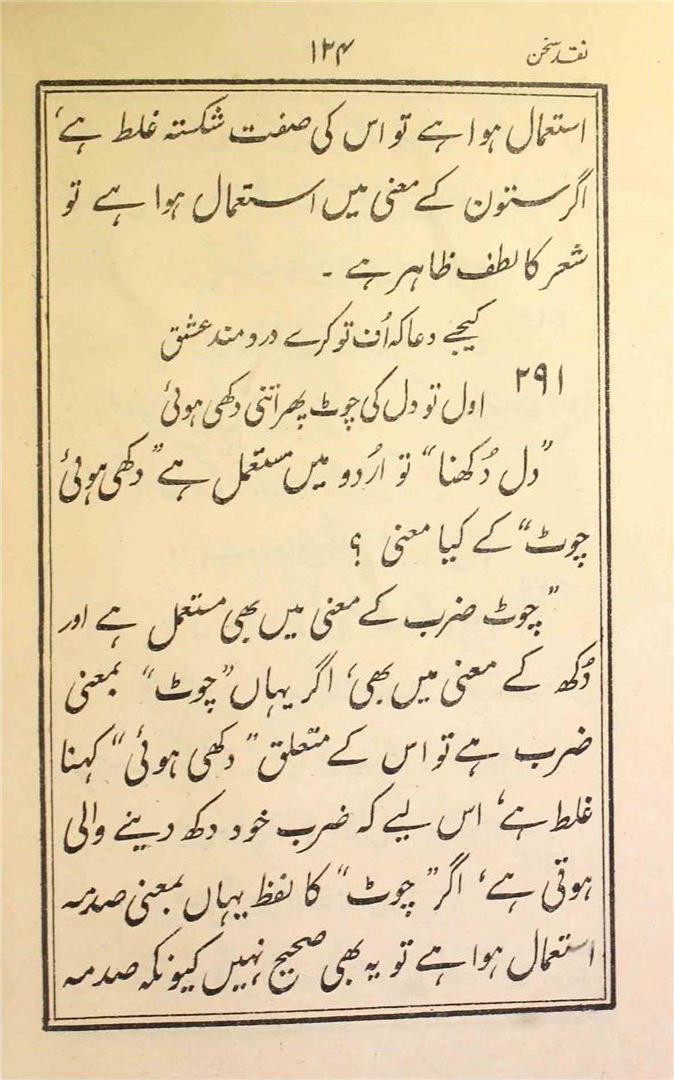 نقد سخن
۱۲۴
استعمال ہوا ہے تو اس کی صفت شکستہ غلط ہے،
اگر ستون کے معنی میں استعمال ہوا ہے تو
شعر کا لطف ظاہر ہے ۔
کیجیے دعا کہ اُف تو کرے دردمند عشق
۲۹۱
اول تو دل کی چوٹ پھر اتنی دکھی ہوئی
"دل دُکھنا" تو اردو میں مستعمل ہے "دکھی ہوئی
چوٹ" کے کیا معنی ؟
"چوٹ ضرب کے معنی میں بھی مستعمل ہے اور
دُکھ کے معنی میں بھی، اگر یہاں "چوٹ" بمعنی
ضرب ہے تو اس کے متعلق "دکھی ہوئی" کہنا
غلط ہے، اس لیے کہ ضرب خود دکھ دینے والی
ہوتی ہے، اگر "چوٹ" کا لفظ یہاں بمعنی صدمہ
استعمال ہوا ہے تو یہ بھی صحیح نہیں کیونکہ صدمہ